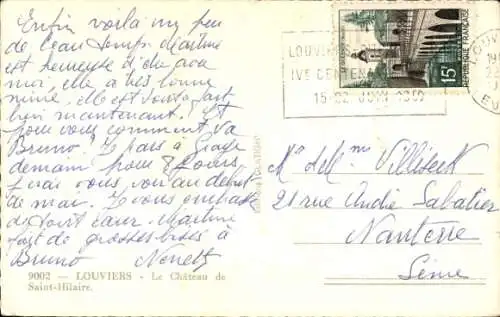 Enfin voilà un peu
de beau temps. Martine
est heureuse d'être avec
moi, elle a très bonne
mine, elle est tout à fait
bien maintenant. Et
pour vous comment va
Bruno? Je pars à
demain pour 8 jours.
J'irai vous voir au début
de mai. Je vous embrasse
de tout cœur. Martine
fait de grosses bises à
Bruno Nenette
9002 — LOUVIERS - Le Château de
Saint-Hilaire.
15F
REPUBLIQUE FRANÇAISE
LOUVIERS
IVE CENTEN
15-22 JUIN
LOUVI
Mr et Mme
21 rue André Sabatier
Nanterre
Seine